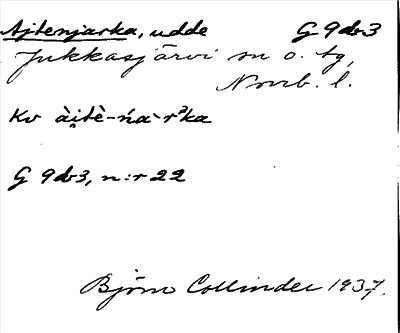 Ajtenjarka, udde G 9d3
Jukkasjärvi sn o. tg,
Norrb. l.
Kv ài̯tè-ńa-r²ka
G 9d3, n:r 22
Björn Collinder 1937.